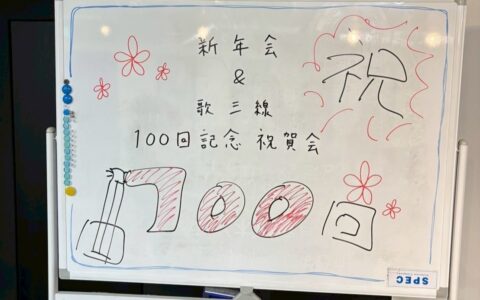 新年会
&
歌三線
100回記念祝賀会
祝
100回
SPEC